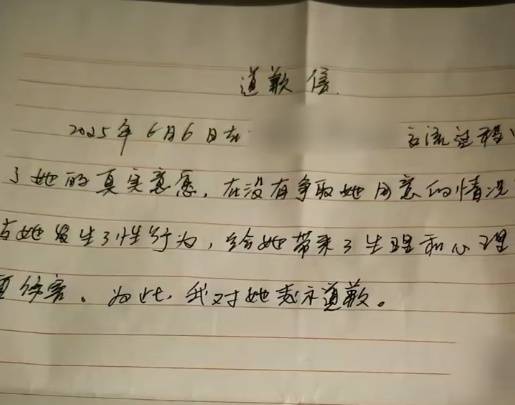 道歉信
2025年6月6日在 交流过程
了她的真实意愿,在没有争取她同意的情况
与她发生了性行为,给她带来了生理和心理
重伤害。为此,我对她表示道歉。